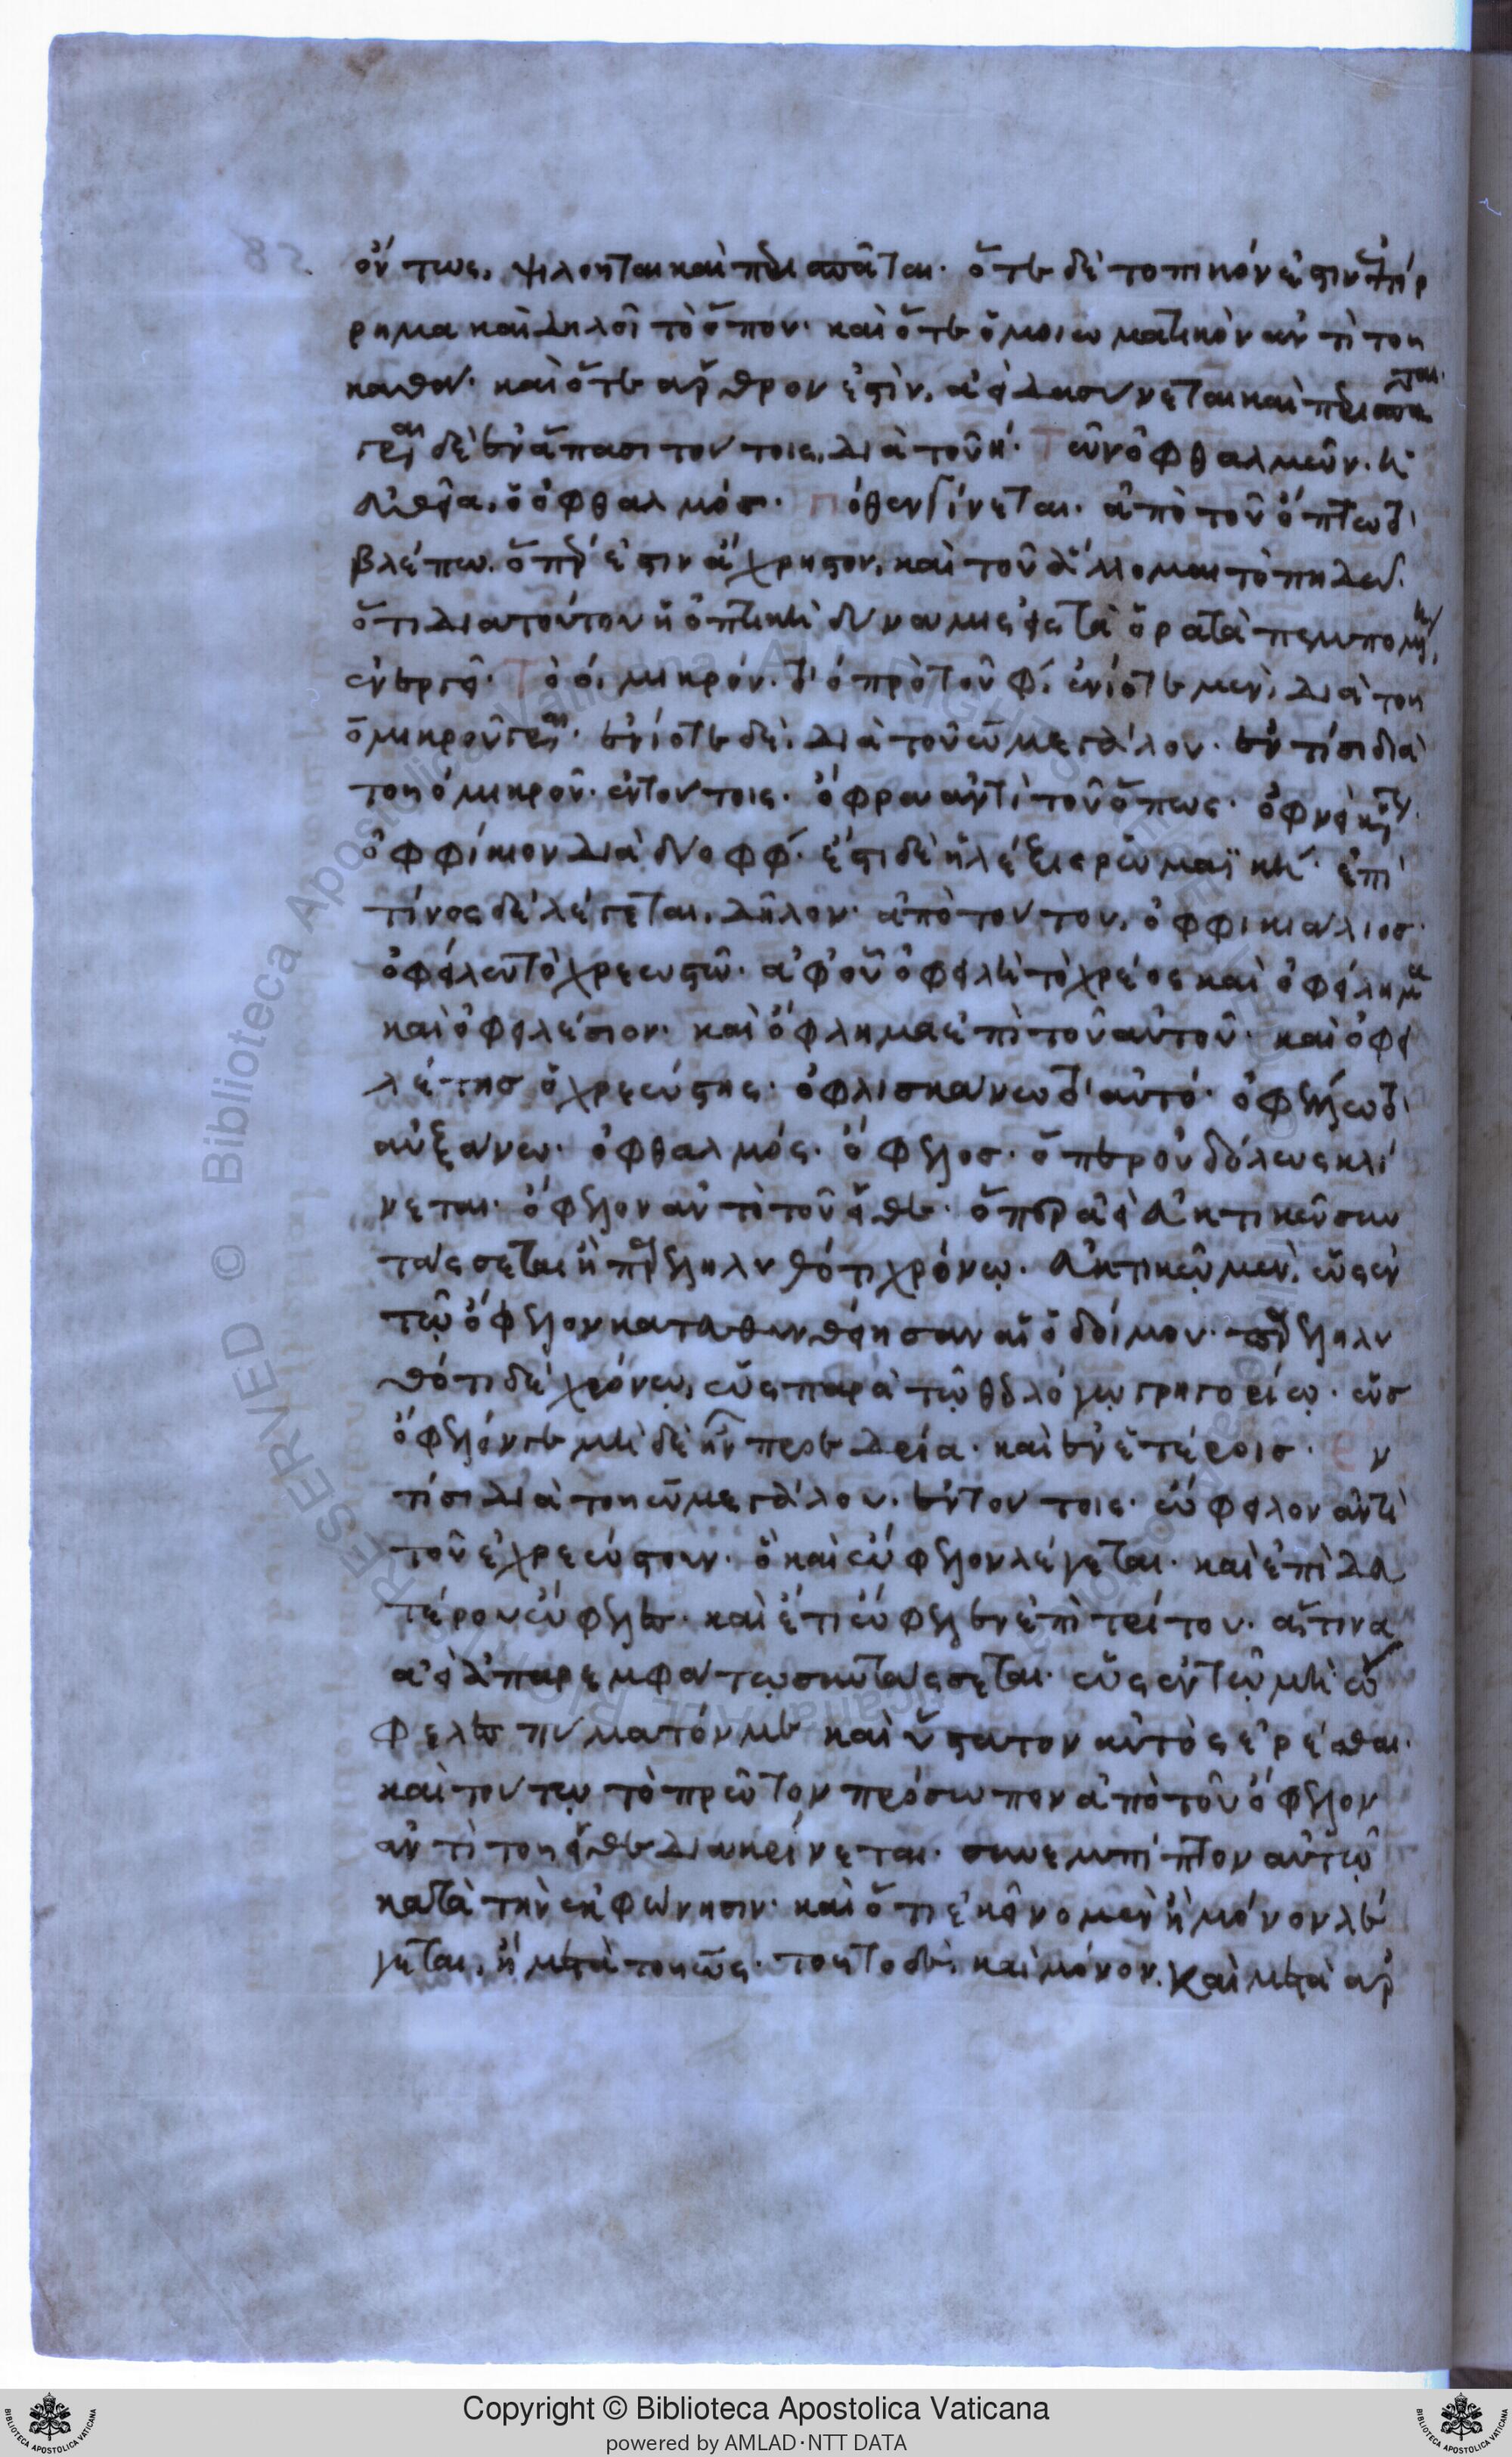 ὄντως, ψιλοῦται καὶ περισπᾶται· ὅτε δὲ τοπικόν ἐστιν ἐπίρ
ρημα καὶ δηλοῖ τὸ ὅπου· καὶ ὅτε ὁμοιωματικὸν ἀντὶ τοῦ
καθά· καὶ ὅτε ἄρθρον ἐστὶν, ἀεὶ δασύνεται καὶ περισπᾶται·
γράφεται δὲ ἐν ἅπασι τούτοις, διὰ τοῦ η· Τῶν ὀφθαλμῶν· ἡ
εὐθεῖα, ὁ ὀφθαλμός· πόθεν γίνεται· ἀπὸ τοῦ ὄπτω τὸ
βλέπω· ὅπερ ἐστιν ἄχρηστον, καὶ τοῦ ἅλλομαι τὸ πηδῶ·
ὅτι διὰ τούτου ἡ ὀπτικὴ δύναμις εἰς τὰ ὁρατὰ πεμπομένη
ἐνεργεῖ· Τὸ ο μικρόν· τὸ πρὸ τοῦ φ, ἐνίοτε μὲν, διὰ τοῦ
ο μικροῦ γράφεται· ἐνίοτε δὲ, διὰ τοῦ ω μεγάλου· ἐν τίσι διὰ
τοῦ ο μικροῦ· ἐν τούτοις· ὄφρα ἀντὶ τοῦ ὅπως·
ὀφφίκιον διὰ δύο φφ· ἔστι δὲ ἡ λέξις ῥωμαϊκή· ἐπὶ
τίνος δὲ λέγεται, δῆλον· ἀπὸ τούτου, ὀφφικιάλιος·
ὀφείλω τὸ χρεωστῶ· ἀφ' οὗ ὀφειλὴ τὸ χρέος καὶ ὀφείλημα
καὶ ὀφειλέσιον· καὶ ὄφλημα ἐπὶ τοῦ αὐτοῦ· καὶ ὀφει
λέτης ὁ χρεώστης· ὀφλισκάνω τὸ αὐτό· ὀφέλλω τὸ
αὐξάνω· ὀφθαλμός· ὄφελος· ὅπερ οὐδόλως κλί
νεται· ὄφελον ἀντὶ τοῦ εἴθε· ὅπερ ἀεὶ εὐκτικῶ συν
τάσσεται ἢ παρεληλυθότι χρόνῳ· εὐκτικῷ μὲν, ὡς ἐν
τῷ ὄφελον κατευθυνθείησαν αἱ ὁδοί μου· παρεληλυ
θότι δὲ χρόνῳ, ὡς παρὰ τῷ θεολόγῳ γρηγορίῳ· ὡς
ὄφελόν γε μὴ δὲ ἦν προεδρεία· καὶ ἐν ἑτέροις· Ἐν
τίσι διὰ τοῦ ω μεγάλου· ἐν τούτοις· ὤφειλον ἀντὶ
τοῦ ἐχρεώστουν· ὃ καὶ ὤφελον λέγεται· καὶ ἐπὶ δευ
τέρου ὤφελες· καὶ ἔτι ὤφελεν ἐπὶ τρίτου· ἅτινα
ἀεὶ ἀπαρεμφάτῳ συντάσσεται· ὡς ἐν τῷ μὴ ὤ
φελες πυματόν με καὶ ὕστατον αὐτὸς ἐρέσθαι·
καὶ τούτῳ τὸ πρῶτον πρόσωπον ἀπὸ τοῦ ὄφελον
ἀντὶ τοῦ εἴθε διακρίνεται· συνεμπίπτον αὐτῷ
κατὰ τὴν ἐκφώνησιν· καὶ ὅτι ἐκεῖνο μὲν ἢ μόνον λέ
γεται, ἢ μετὰ τοῦ ὡς· τοῦτο δὲ, καὶ μόνον, καὶ μετὰ ἄρ